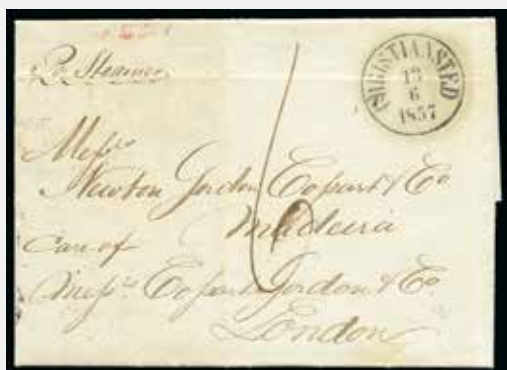 Pr Steamer
CHRISTIANSTED
13
6
1857
Messrs
Newton Gordon Cossart & Co
Madeira
Care of
Messrs Cossart Gordon & Co
London